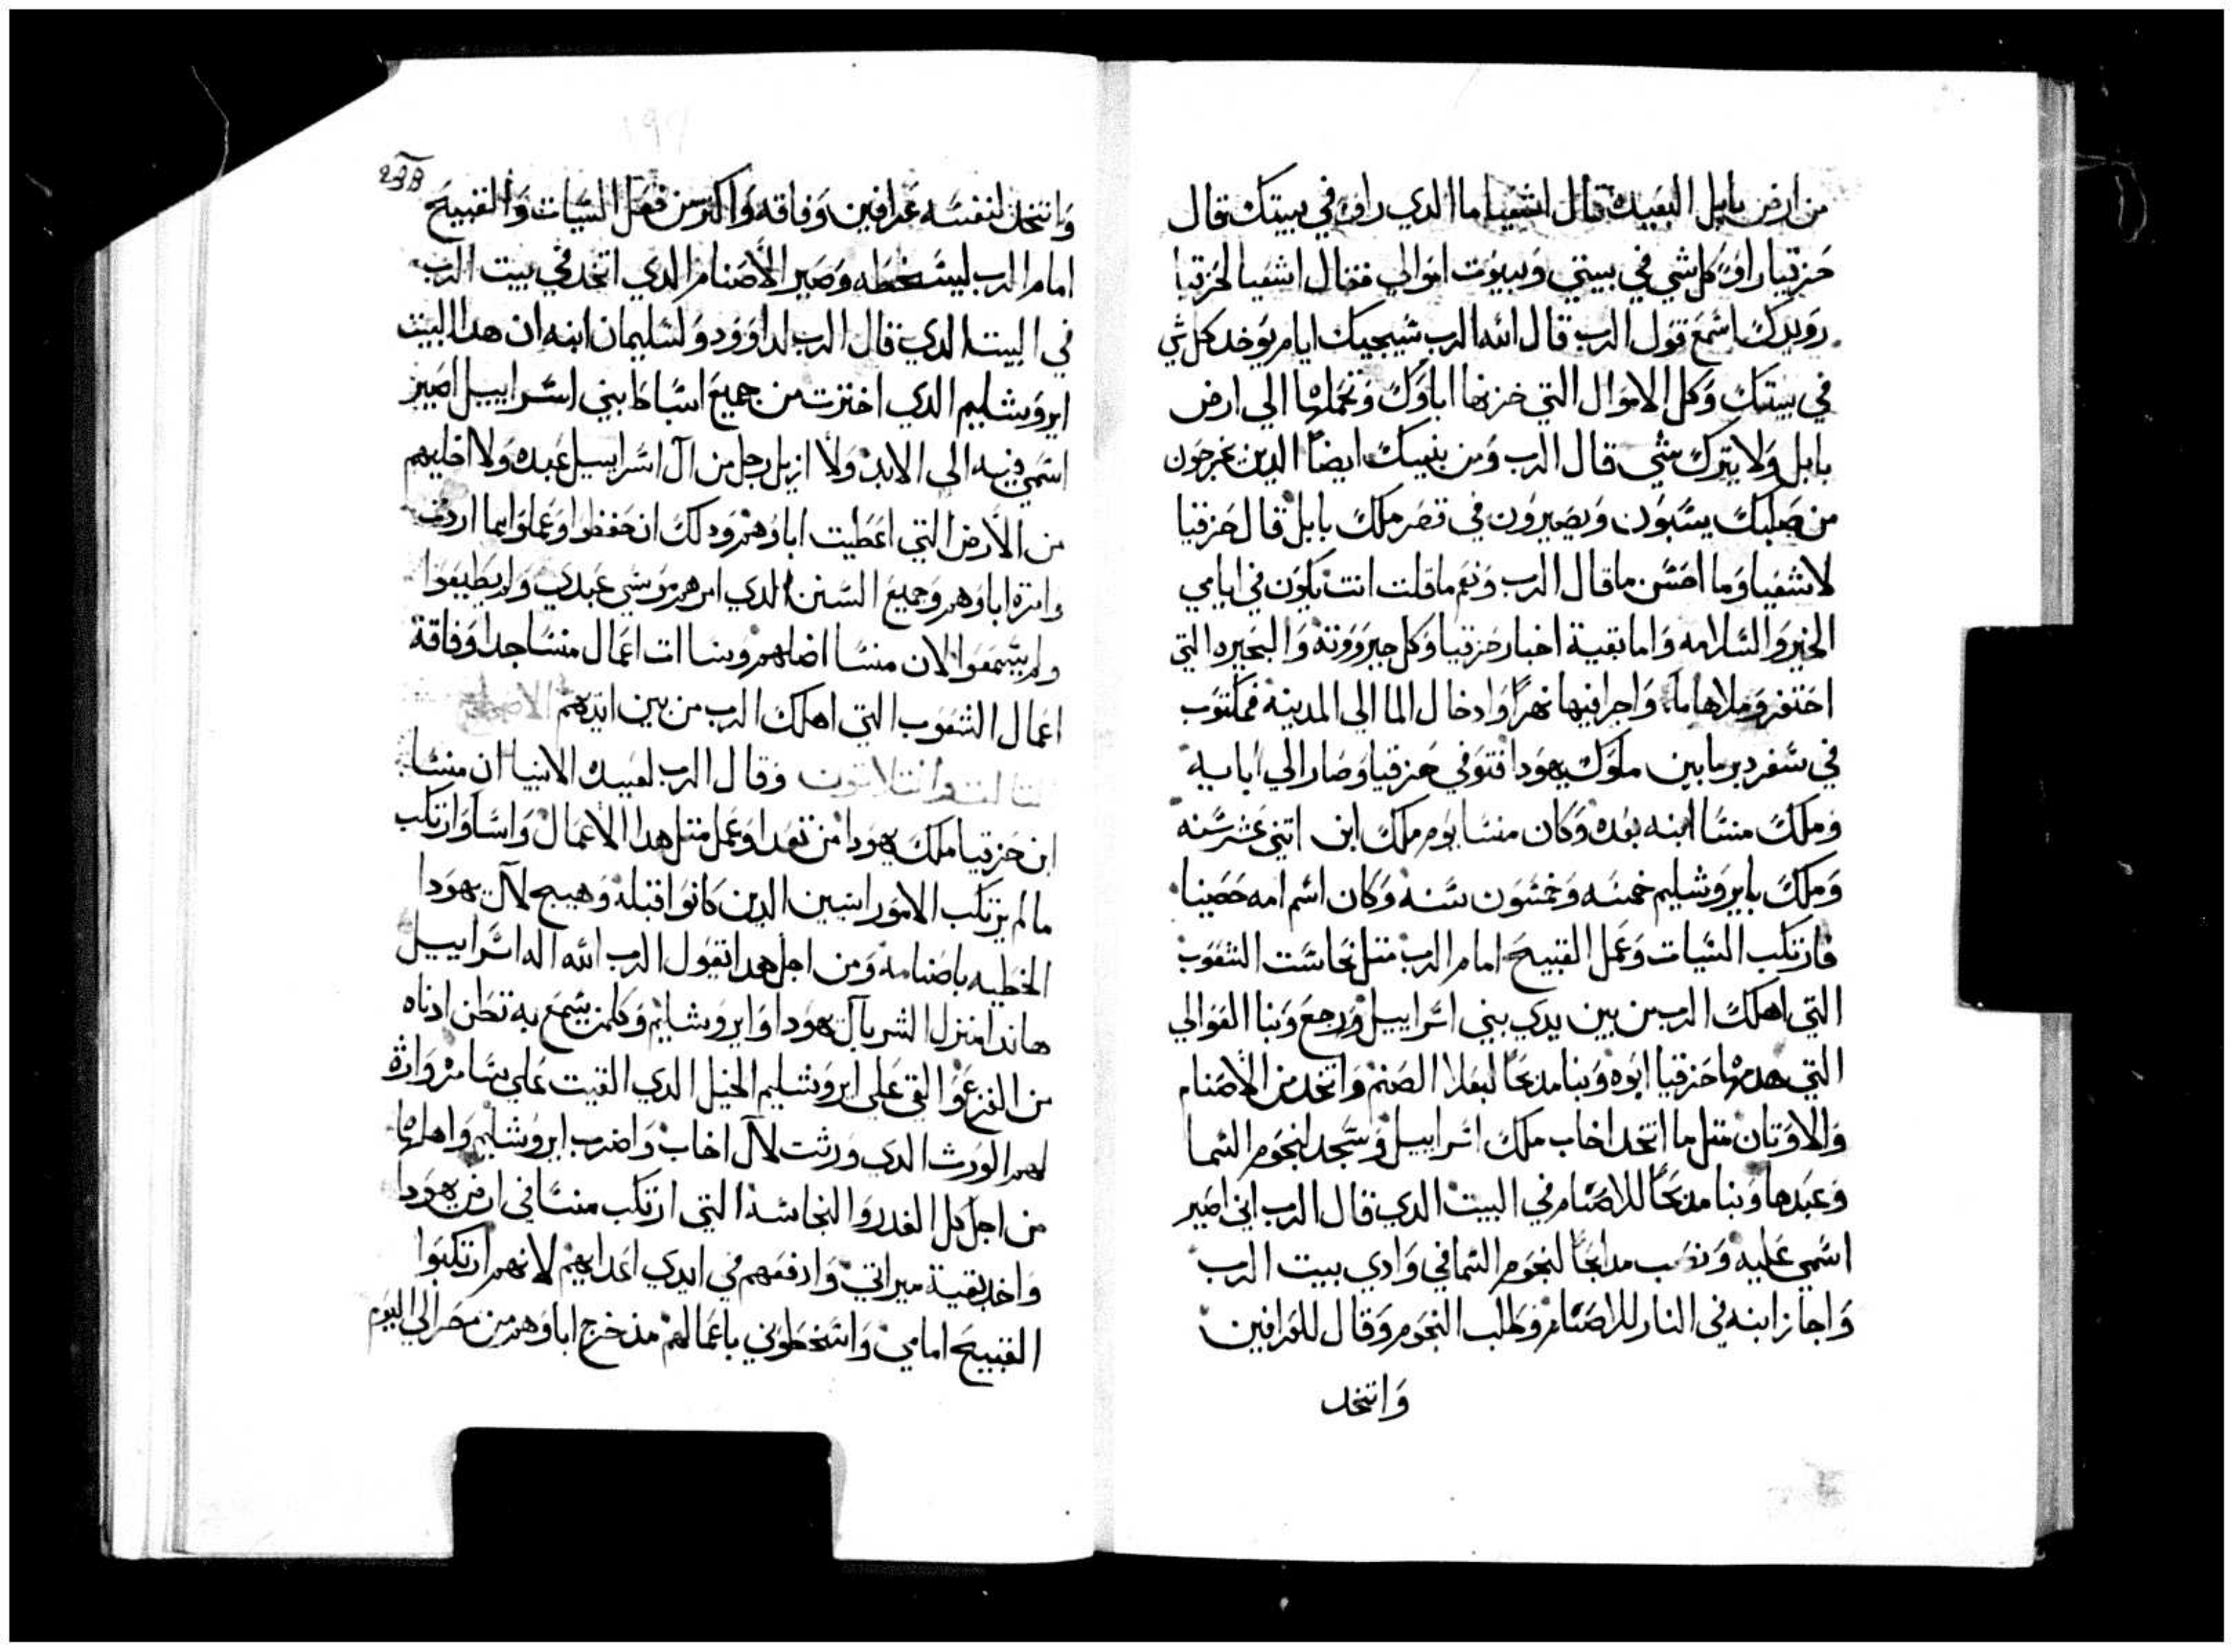 من ارض بابل البعيده قال اشعيا ما الدي راوا في بيتك قال
حزقيا راوا كل شي في بيتي وبيوت اموالي فقال اشعيا لحزقيا
رويدك اسمع قول الرب قال الله الرب سيجيك ايام يوخد كل شي
في بيتك وكل الاموال التي خزنها اباوك وتحملها الي ارض
بابل ولا يترك شي قال الرب ومن بنيك ايضا الدين يخرجون
من صلبك يسبون ويصيرون في قصر ملك بابل قال حزقيا
لاشعيا وما احسن ما قال الرب ونعم ما قلت انت يكون في ايامي
الخير والسلامه واما بقية اخبار حزقيا وكل جبرووته والبحيره التي
احتفر وملاها ما واجرا فيها نهرا وادخال الما الي المدينه فمكتوب
في سفر دبريامين ملوك يهودا فتوفي حزقيا وصار الي ابايه
وملك منسا ابنه بعده وكان منسا يوم ملك ابن اتني عشر سنه
وملك بايروشليم خمسه وخمسون سنه وكان اسم امه حصينا
فارتكب السيات وعمل القبيح امام الرب متل نجاست الشعوب
التي اهلك الرب من بين يدي بني اسراييل ورجع وبنا العوالي
التي هدمها حزقيا ابوه وبنا مدبحا لبعلا الصنم واتخد من الاصنام
والاوتان متل ما اتخد اخاب ملك اسراييل وسجد لنجوم السما
وعبدها وبنا مدبحا للاصنام في البيت الدي قال الرب اني اصير
اسمي عليه ونصب مدابحا لنجوم السما في وادي بيت الرب
واجاز ابنه في النار للاصنام وطلب النجوم وقال للعرافين
واتخد
238
واتخد لنفسه عرافين وفاقه واكتر من فعل السيات والقبيح
امام الرب ليسخطه وصير الاصنام الدي اتخد في بيت الرب
في البيت الدي قال الرب لداوود ولسليمان ابنه ان هدا البيت
ايروشليم الدي اخترت من جميع اسباط بني اسراييل اصير
اسمي فيه الي الابد ولا ازيل رجل من آل اسراييل عبده ولا اخليهم
من الارض التي اعطيت اباوهم ودلك ان حفظوا وعملوا بما اردت
وامرة اباوهم وجميع السنن الدي امرهم موسي عبدي ولم يطيعوا
ولم يسمعوا لان منسا اضلهم وبنا ات اعمال منسا جدا وفاقة
اعمال الشعوب التي اهلك الرب من بين ايديهم الاصحاح
التالت والتلاتون وقال الرب لعبيده الانبيا ان منسا
ابن حزقيا ملك يهودا من تعدا وعمل متل هدا الاعمال واسا وارتكب
ما لم يرتكب الامورانيين الدين كانوا قبله وهيج لآل يهودا
الخطيه باصنامه ومن اجل هدا يقول الرب الله اله اسراييل
هاندا منزل الشر بآل يهودا وايروشليم وكلمن يسمع به تطن ادناه
من الفزع والقي علي ايروشليم الحبل الدي القيت علي سامره وارث
لهم الورث الدي ورثت لآل اخاب واضرب ايروشليم واهلها
من اجل كل الغدر والنجاسة التي ارتكب منسا في ارض يهودا
واخد بقية ميراتي وادفعهم في ايدي اعدايهم لانهم ارتكبوا
القبيح امامي واسخطوني باعمالهم مند خرج اباوهم من مصر الي اليوم